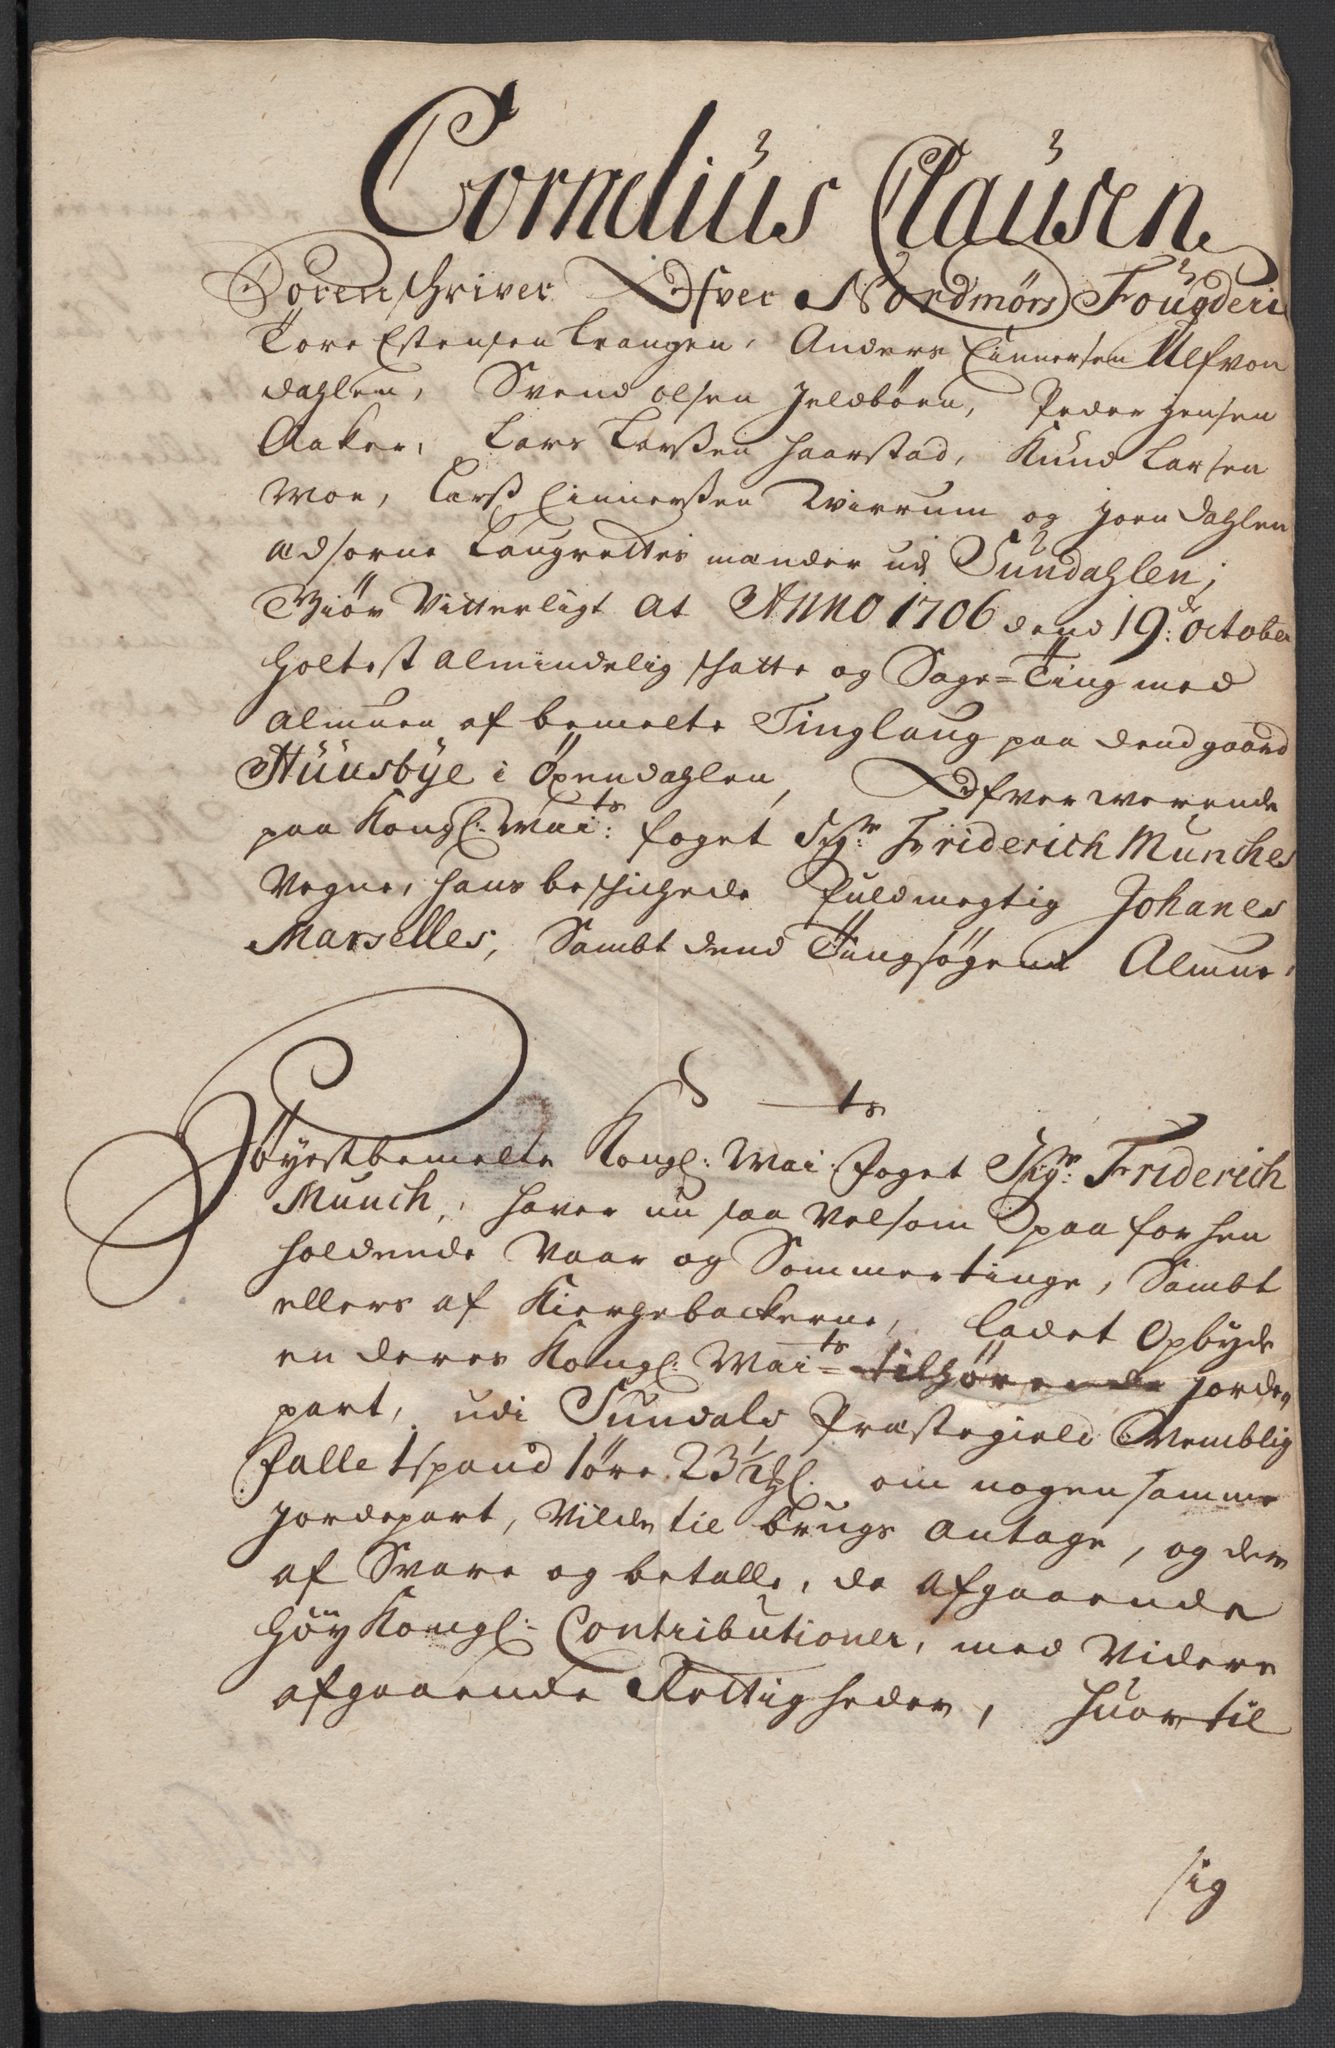 Cornelius Clausen
Sorenschriver Ofver Nordmørs Fougderi
Tore Estensen Trangen, Anders Einnersen Alfvon
dahlen, Svend olsen Jeldbøen, Peder Jensen
Aaker, Lars Larsßen Haarstad, Knud Larsen
Moe, Larß Einnerßen Tvirrum og Joen Dahlen
Edsorne Laugrettes mænder udj Sundahlen;
Giør Vitterligt At Anno 1706 dend 19:de October
holtest Almindelig schatte og Sage=Ting med
Almuen af bemelte Tinglaug paa dend gaard
Huusbye i Øxendahlen, Ofververende
paa Kongl: Mai:ts foget Sgr: Friderich Munches
Vegne, hans beschichede fuldmegtig Johanes
Marselles, Sambt dend Tingsøgend Almue,
Høyestbemelte Kongl: Mai:ts foget Sgr: Friderich
Munch, haver nu saa velsom paa forhen
holdende Vaar og Sommertinge, Sambt
ellers af Kierchebackerne, ladet Opbyde
en deres Kongl: Mai:ts tilhørende jorde
part, udi Sundals Præstegield Nemblig
Falle 1 spand 1 øre 23 1/2 #l. om nogen samme
jordepart, vilde til brugs Antage, og der
af Svare og betalle, de afgaaende
høy Kongl: Contributioner, med Videre
afgaaende Rettigheder, huor til
sig